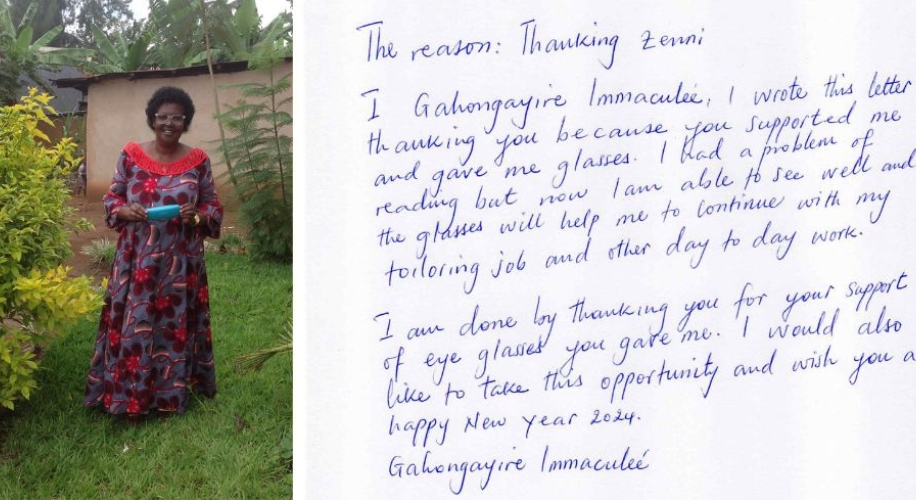 The reason: Thanking Zenni
I Gahongayire Immaculeé, I wrote this letter
thanking you because you supported me
and gave me glasses. I had a problem of
reading but now I am able to see well and
the glasses will help me to continue with my
toiloring job and other day to day work.
I am done by thanking you for your support
of eye glasses you gave me. I would also
like to take this opportunity and wish you a
happy New Year 2024.
Gahongayire Immaculeé